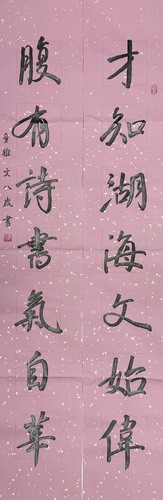 才知湖海文始偉
腹有詩書氣自華
雅文八歲書